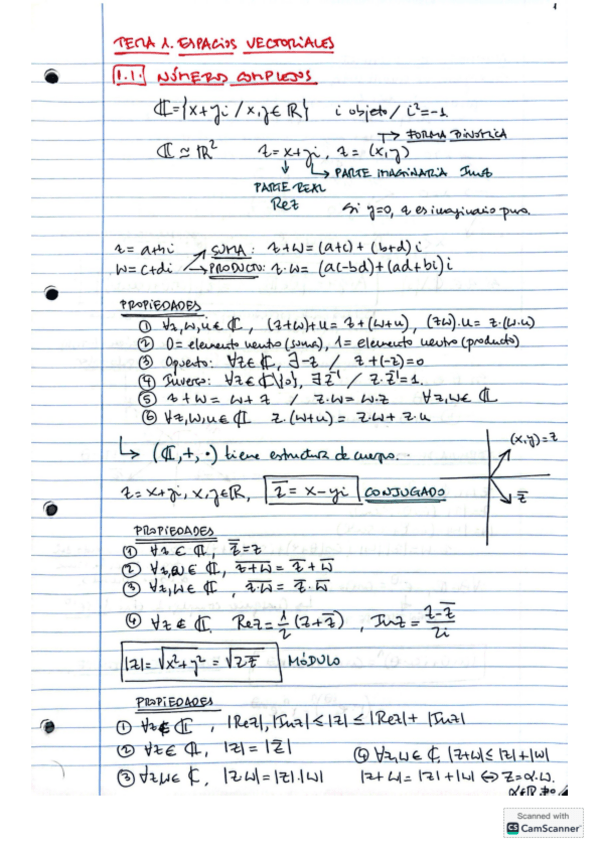 1
TEMA 1. ESPACIOS VECTORIALES
1.1. NÚMEROS COMPLEJOS
ℂ={x+yi / x,y∈ℝ} i objeto / i²=-1
→ FORMA BINÓMICA
ℂ ≃ ℝ² z=x+yi, z=(x,y)
↓ ↳ PARTE IMAGINARIA Imz
PARTE REAL
Rez
Si y=0, z es imaginario puro.
z=a+bi SUMA: z+w=(a+c)+(b+d)i
w=c+di PRODUCTO: z·w=(ac-bd)+(ad+bi)i
PROPIEDADES
① ∀z,w,u∈ℂ, (z+w)+u=z+(w+u), (zw)·u=z·(w·u)
② 0=elemento neutro (suma), 1=elemento neutro (producto)
③ Opuesto: ∀z∈ℂ, ∃-z / z+(-z)=0
④ Inverso: ∀z∈ℂ\{0}, ∃z⁻¹ / z·z⁻¹=1.
⑤ z+w=w+z / z·w=w·z ∀z,w∈ℂ
⑥ ∀z,w,u∈ℂ z·(w+u)=z·w+z·u
↳ (ℂ,+,·) tiene estructura de cuerpo.
(x,y)=z
z̄
z=x+yi, x,y∈ℝ, z̄=x-yi CONJUGADO
PROPIEDADES
① ∀z∈ℂ, z̄=z
② ∀z,w∈ℂ, z̅+̅w̅=z̄+w̄
③ ∀z,w∈ℂ, z̅·̅w̅=z̄·w̄
④ ∀z∈ℂ. Rez=1/2(z+z̄), Imz=(z-z̄)/2i
|z|=√(x²+y²)=√(zz̄) MÓDULO
PROPIEDADES
① ∀z∈ℂ, |Rez|,|Imz|≤|z|≤|Rez|+|Imz|
② ∀z∈ℂ, |z|=|z̄| ④ ∀z,w∈ℂ, |z+w|≤|z|+|w|
③ ∀z,w∈ℂ, |z·w|=|z|·|w| |z+w|=|z|+|w|⇔z=α·w.
α∈ℝ
Scanned with
CS CamScanner